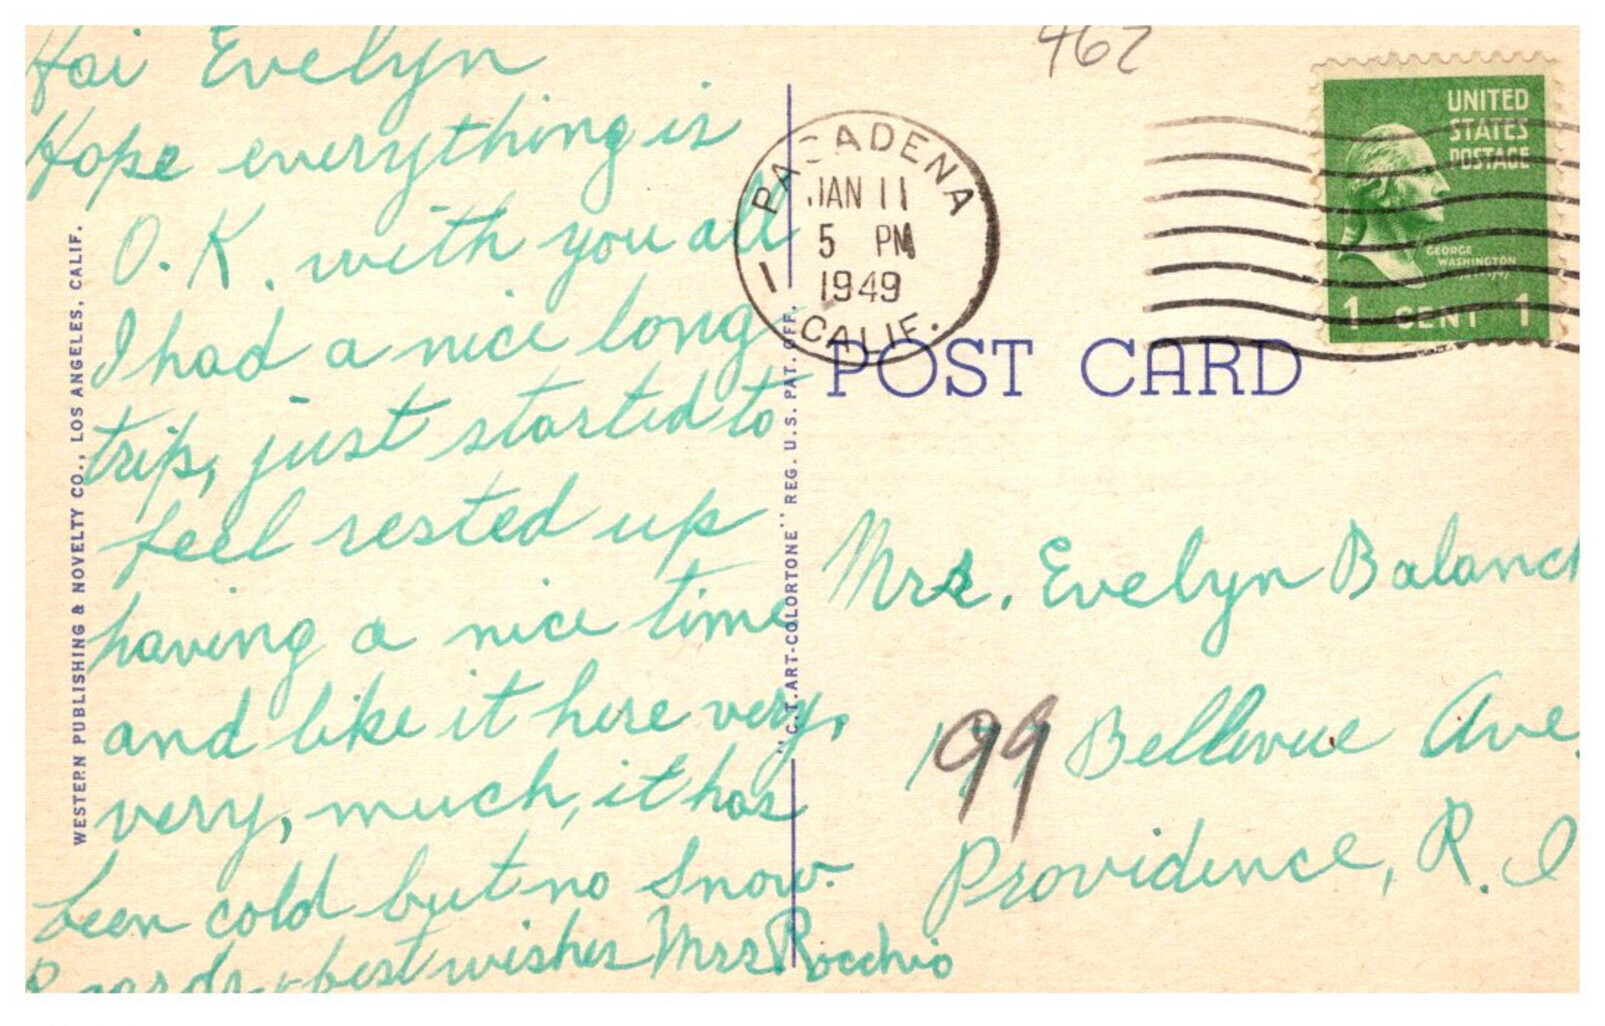 Hai Evelyn
Hope everything is
O.K. with you all
I had a nice long
trip, just started to
feel rested up
having a nice time
and like it here very,
very, much, it has
been cold but no snow.
Regards & best wishes Mrs Rocchio
WESTERN PUBLISHING & NOVELTY CO., LOS ANGELES, CALIF.
"C.T. ART-COLORTONE" REG. U.S. PAT. OFF.
462
PASADENA
JAN 11
5 PM
1949
1
CALIF.
UNITED
STATES
POSTAGE
GEORGE
WASHINGTON
1 CENT 1
POST CARD
Mrs. Evelyn Balanc
99 Bellevue Ave.
Providence, R. I